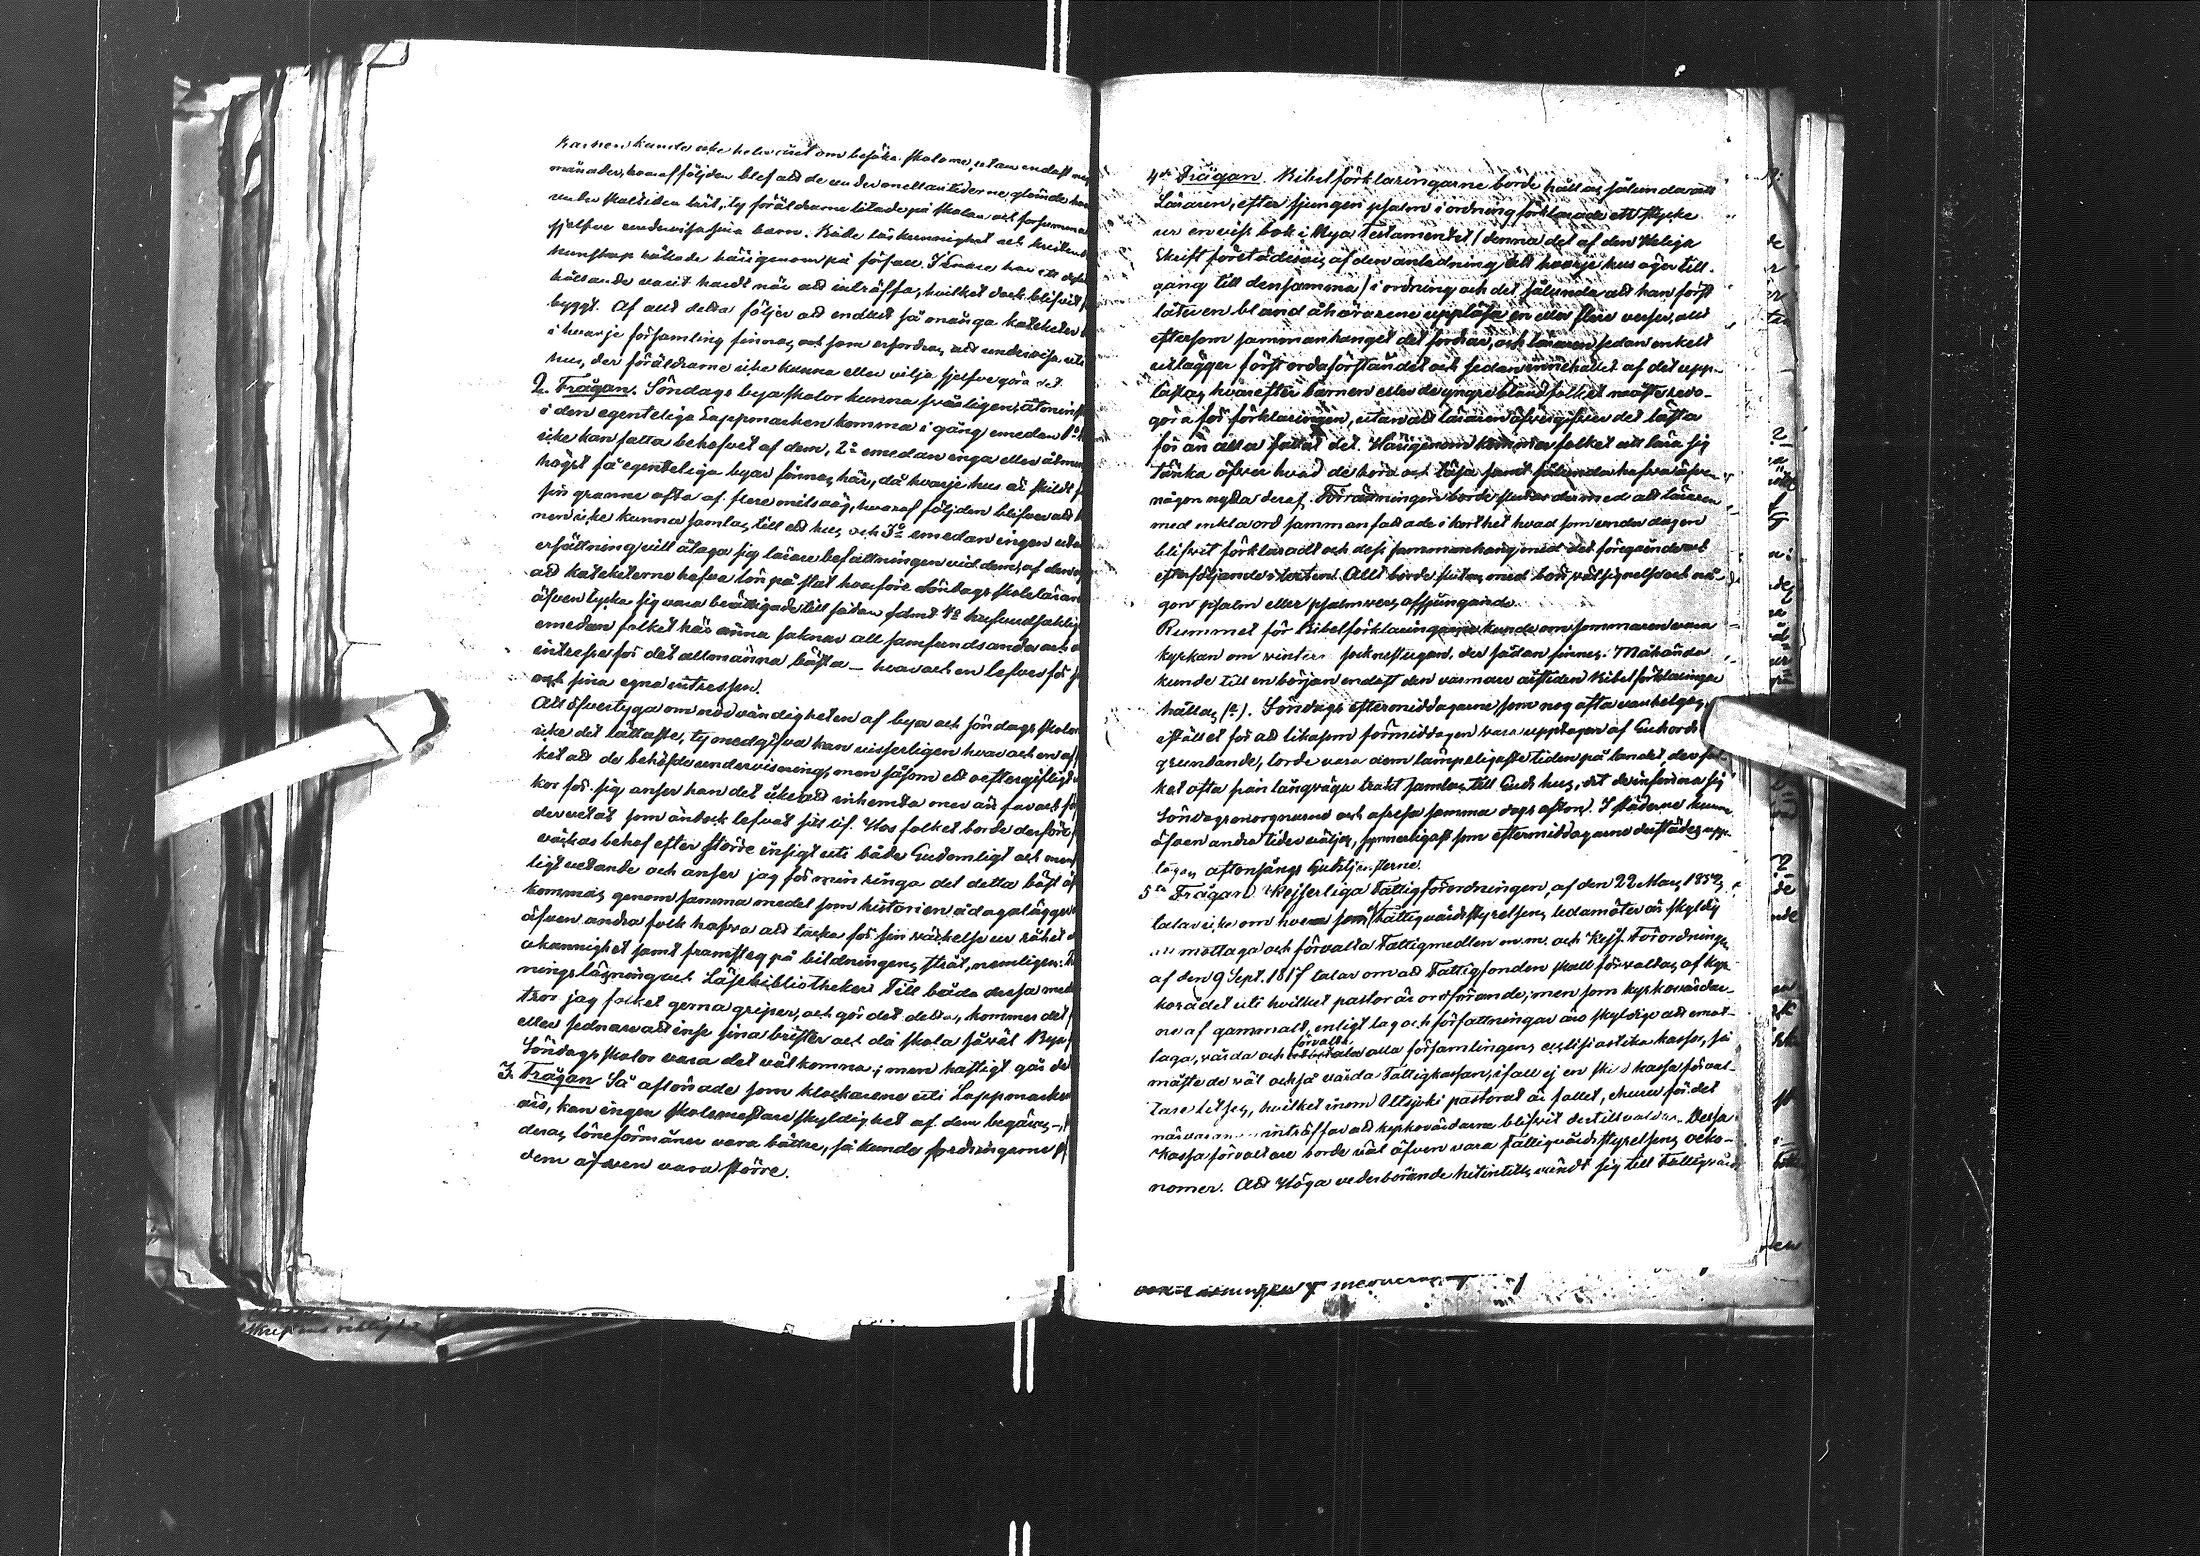 Barnen kunde icke hela året om besöka skolorne, utan endast
månader, hvaraf följden blef att de under mellantiderne glömde
under skoltiden lärt, ty föräldrarne litade på skolan och försumma
sjelfve undervisa sina barn. Både läskunnighet och kristen
kunskap råkade härigenom på förfall. I Enare har ett
hållande varit hardt när att inträffa, hvilket dock blifvit
byggt. Af allt detta följer att endast så många kateketer
i hvarje församling finnas, och som erfordras att undervisa uti
hus, der föräldrarne icke kunna eller vilja sjelfve göra det.
2. Frågan. Söndags byaskolor kunna svårligen, åtmins
i den egenteliga Lappmarken komma i gång emedan 1o
icke kan fatta behofvet af dem, 2o emedan inga eller åtmin
högst få egenteliga byar finnas här, då hvarje hus är skildt
sin granne ofta af flere mils väg, hvaraf följden blifver att
nen icke kunna samlas till ett hus, och 3o emedan ingen utan
ersättning vill åtaga sig lärare befattningen vid dem, af den
att kateketerne hafva lön på stat hvarföre Söndags skolelärar
äfven tycka sig vara berättigade till sådan samt 4o hufvudsaklig
emedan folket här ännu saknar all samfundsanda och
intresse för det allmänna bästa – hvar och en lefver för
och sina egna intressen.
Att öfvertyga om nödvändigheten af bya och söndags skolor
icke det lättaste, ty medgifva kan visserligen hvar och en af
ket att de behöfde undervisning, men såsom ett oeftergifligt
kor för sig anser han det icke att inhemta mer än far och
der vetat som ändock lefvat sitt lif. Hos folket borde derföre
väckas behof efter större insigt uti både Gudomligt och men
ligt vetande och anser jag för min ringa del detta bäst
kommas, genom samma medel som historien ådagalägger
äfven andra folk hafva att tacka för sin väckelse ur råhet
okunnighet samt framsteg på bildningens stråt, nemligen:
ningsläsning och Läsebibliotheker. Till båda dessa med
tror jag folket gerna griper, och gör det detta, kommer det
eller sednare att inse sina brister och då skola såväl Bya
Söndagsskolor vara det välkomna; men hastigt går de
3. Frågan Så aflönade som klockarene uti Lappmarken
äro, kan ingen skolemästare skyldighet af dem begäras –
deras löneförmåner vara bättre, så kunde fordringarne
dem äfven vara större.
4de Frågan. Bibelförklaringarne borde hållas sålunda att
Läraren, efter sjungen psalm i ordning förklarade ett stycke
ur en viss bok i Nya Testamentet (denna del af den Heliga
Skrift företrädesvis af den anledning att hvarje hus äger till-
gång till densamma) i ordning och det sålunda att han först
låter en bland åhörarene uppläsa en eller flere verser, allt
eftersom sammanhanget det fordrar, och läraren sedan enkelt
utlägger först ordaförståndet och sedan innehållet af det upp-
lästa, hvarefter barnen eller de yngre bland folket måste redo-
göra för förklaringen, utan att läraren öfvergifver det lästa
för än alla fattat det. Härigenom kommer folket att lära sig
tänka öfver hvad de hörd och läsa samt sålunda hafva äfven
någon nytta deraf. Förrättningen borde slutas dermed att läraren
med enkla ord sammanfattade i korthet hvad som under dagen
blifvit förklaradt och dess sammanhang med det föregående och
efterföljande i texten. Allt borde slutas med bön, välsignelse och nå-
gon psalm eller psalmvers afsjungande.
Rummet för Bibelförklaringarne kunde om sommaren vara
kyrkan om vintern sockenstugan, der sådan finnes. Måhända
kunde till en början endast den varmare årstiden Bibelförklaringar
hållas (?). Söndags eftermiddagarne, som nog ofta vanhelgas,
istället för att likasom förmiddagen vara upptagen af Guds ords
grundande, torde vara dem lämpeligaste tiden på landet, der fol-
ket ofta från långväga trakt samlas till Guds hus, dit de infinna sig
Söndagsmorgnarne och afresa samma dags afton. I städerne kunna
äfven andra tider väljas, synnerligast som eftermiddagarne derstädes upp-
tagas aftonsångs Gudstjensterne.
5te Frågan Kejserliga Fattigförordningen, af den 22 Mars 1852,
talar icke om hvem som af Fattigvårdsstyrelsens ledamöter är skyldig
att mottaga och förvalta Fattigmedlen m.m. och Kejs. Förordningen
af den 9 Sept. 1817 talar om att Fattigfonden skall förvaltas af Kyr-
korådet uti hvilket pastor är ordförande; men som kyrkovärdar-
ne af gammalt, enligt lag och författningar äro skyldige att emot-
förvalta
taga, vårda och alla församlingens ecclesiastika kassor, så
måste de väl också vårda Fattigkassan, ifall ej en skild kassaförval-
tare utses, hvilket inom Utsjoki pastorat är fallet, ehuru för det
närvarande inträffar att kyrkovärdarne blifvit dertill valde. Dessa
Kassaförvaltare borde väl äfven vara Fattigvårdsstyrelsens oeko-
nomer. Att Höga vederbörande hitintills vändt sig till Fattigvårds